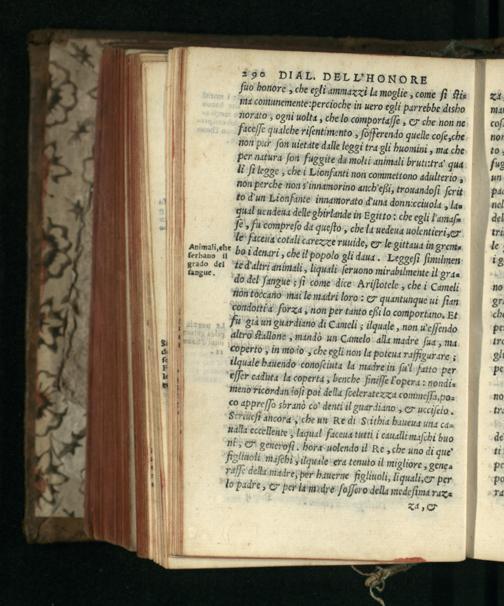 290 DIAL. DELL'HONORE
suo honore, che egli ammazzi la moglie, come si sti-
ma comunemente: percioche in uero egli parrebbe disho
norato, ogni uolta, che lo comportasse, & che non ne
facesse qualche risentimento, sofferendo quelle cose, che
non pur son uietate dalle leggi tra gli huomini, ma che
per natura son fuggite da molti animali bruti: tra' qua
li si legge, che i Lionfanti non commettono adulterio,
non perche non s'innamorino anch'essi, trouandosi scrit
to d'un Lionfante innamorato d'una donnicciuola, la-
qual uendeua delle ghirlande in Egitto: che egli l'amas-
se, fu compreso da questo, che la uedeua uolentieri, &
le faceua cotali carezze ruuide, & le gittaua in grem-
bo i denari, che il popolo gli daua. Leggesi similmen
te d'altri animali, liquali seruono mirabilmente il gra-
do del sangue; si come dice Aristotele, che i Cameli
non toccano mai le madri loro: & quantunque ui sian
condotti a forza, non per tanto essi lo comportano. Et
fu già un guardiano di Cameli; ilquale, non u'essendo
altro stallone, mandò un Camelo alla madre sua, ma
coperto, in modo, che egli non la poteua raffigurare;
ilquale hauendo conosciuta la madre in su'l fatto per
esser caduta la coperta, benche finisse l'opera: nondi-
meno ricordandosi poi della sceleratezza commessa, po-
co appresso sbranò co' denti il guardiano, & ucciselo.
Scriuesi ancora, che un Re di Scithia haueua una ca-
ualla eccellente, laqual faceua tutti i caualli maschi buo
ni, & generosi. hora uolendo il Re, che uno di que'
figliuoli maschi, ilquale era tenuto il migliore, gene-
rasse della madre, per hauerne figliuoli, liquali, & per
lo padre, & per la madre fossero della medesima raz-
za, &
Animali, che
serbano il
grado del
sangue.